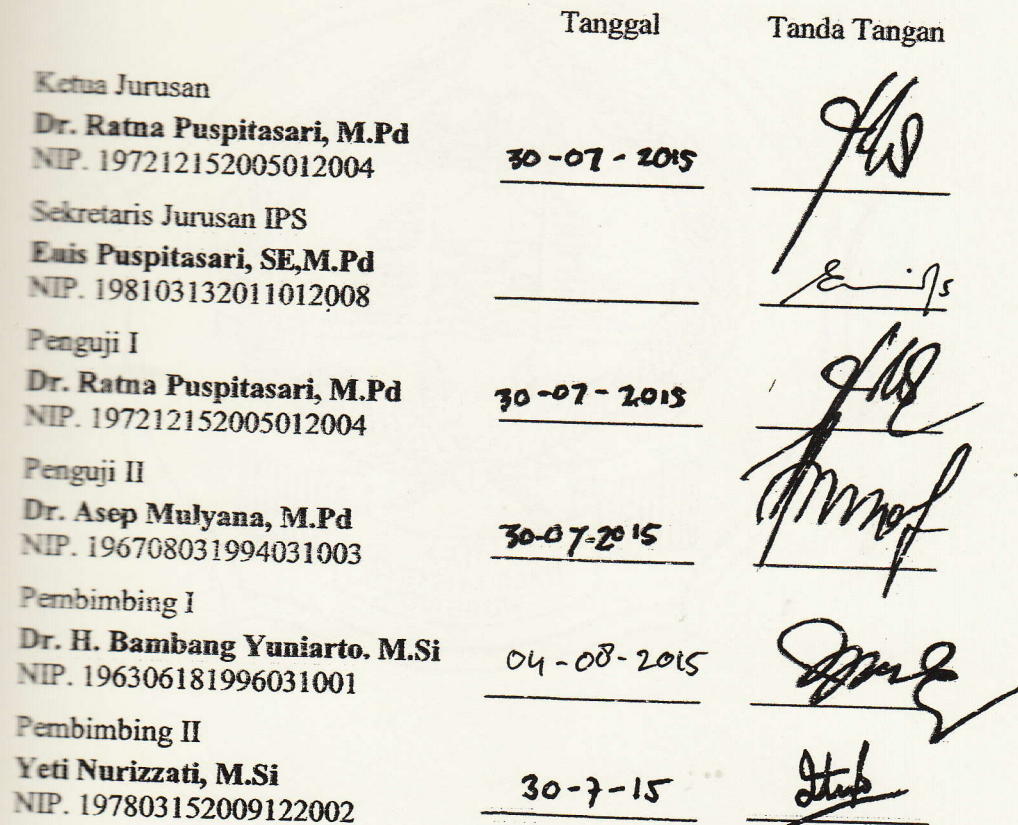 Tanggal Tanda Tangan
Ketua Jurusan
Dr. Ratna Puspitasari, M.Pd
NIP. 197212152005012004 30-07-2015
Sekretaris Jurusan IPS
Euis Puspitasari, SE,M.Pd
NIP. 198103132011012008
Penguji I
Dr. Ratna Puspitasari, M.Pd 30-07-2015
NIP. 197212152005012004
Penguji II
Dr. Asep Mulyana, M.Pd
NIP. 196708031994031003 30-07-2015
Pembimbing I
Dr. H. Bambang Yuniarto, M.Si 04-08-2015
NIP. 196306181996031001
Pembimbing II
Yeti Nurizzati, M.Si 30-7-15
NIP. 197803152009122002